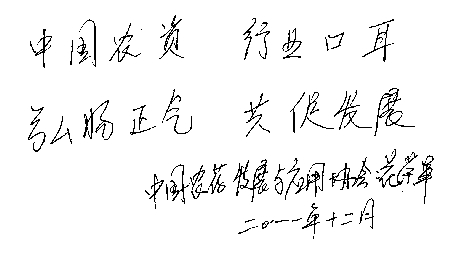 中国农资 行业口耳
弘扬正气 共促发展
中国农药发展与应用协会 花荣军
二〇一一年十二月